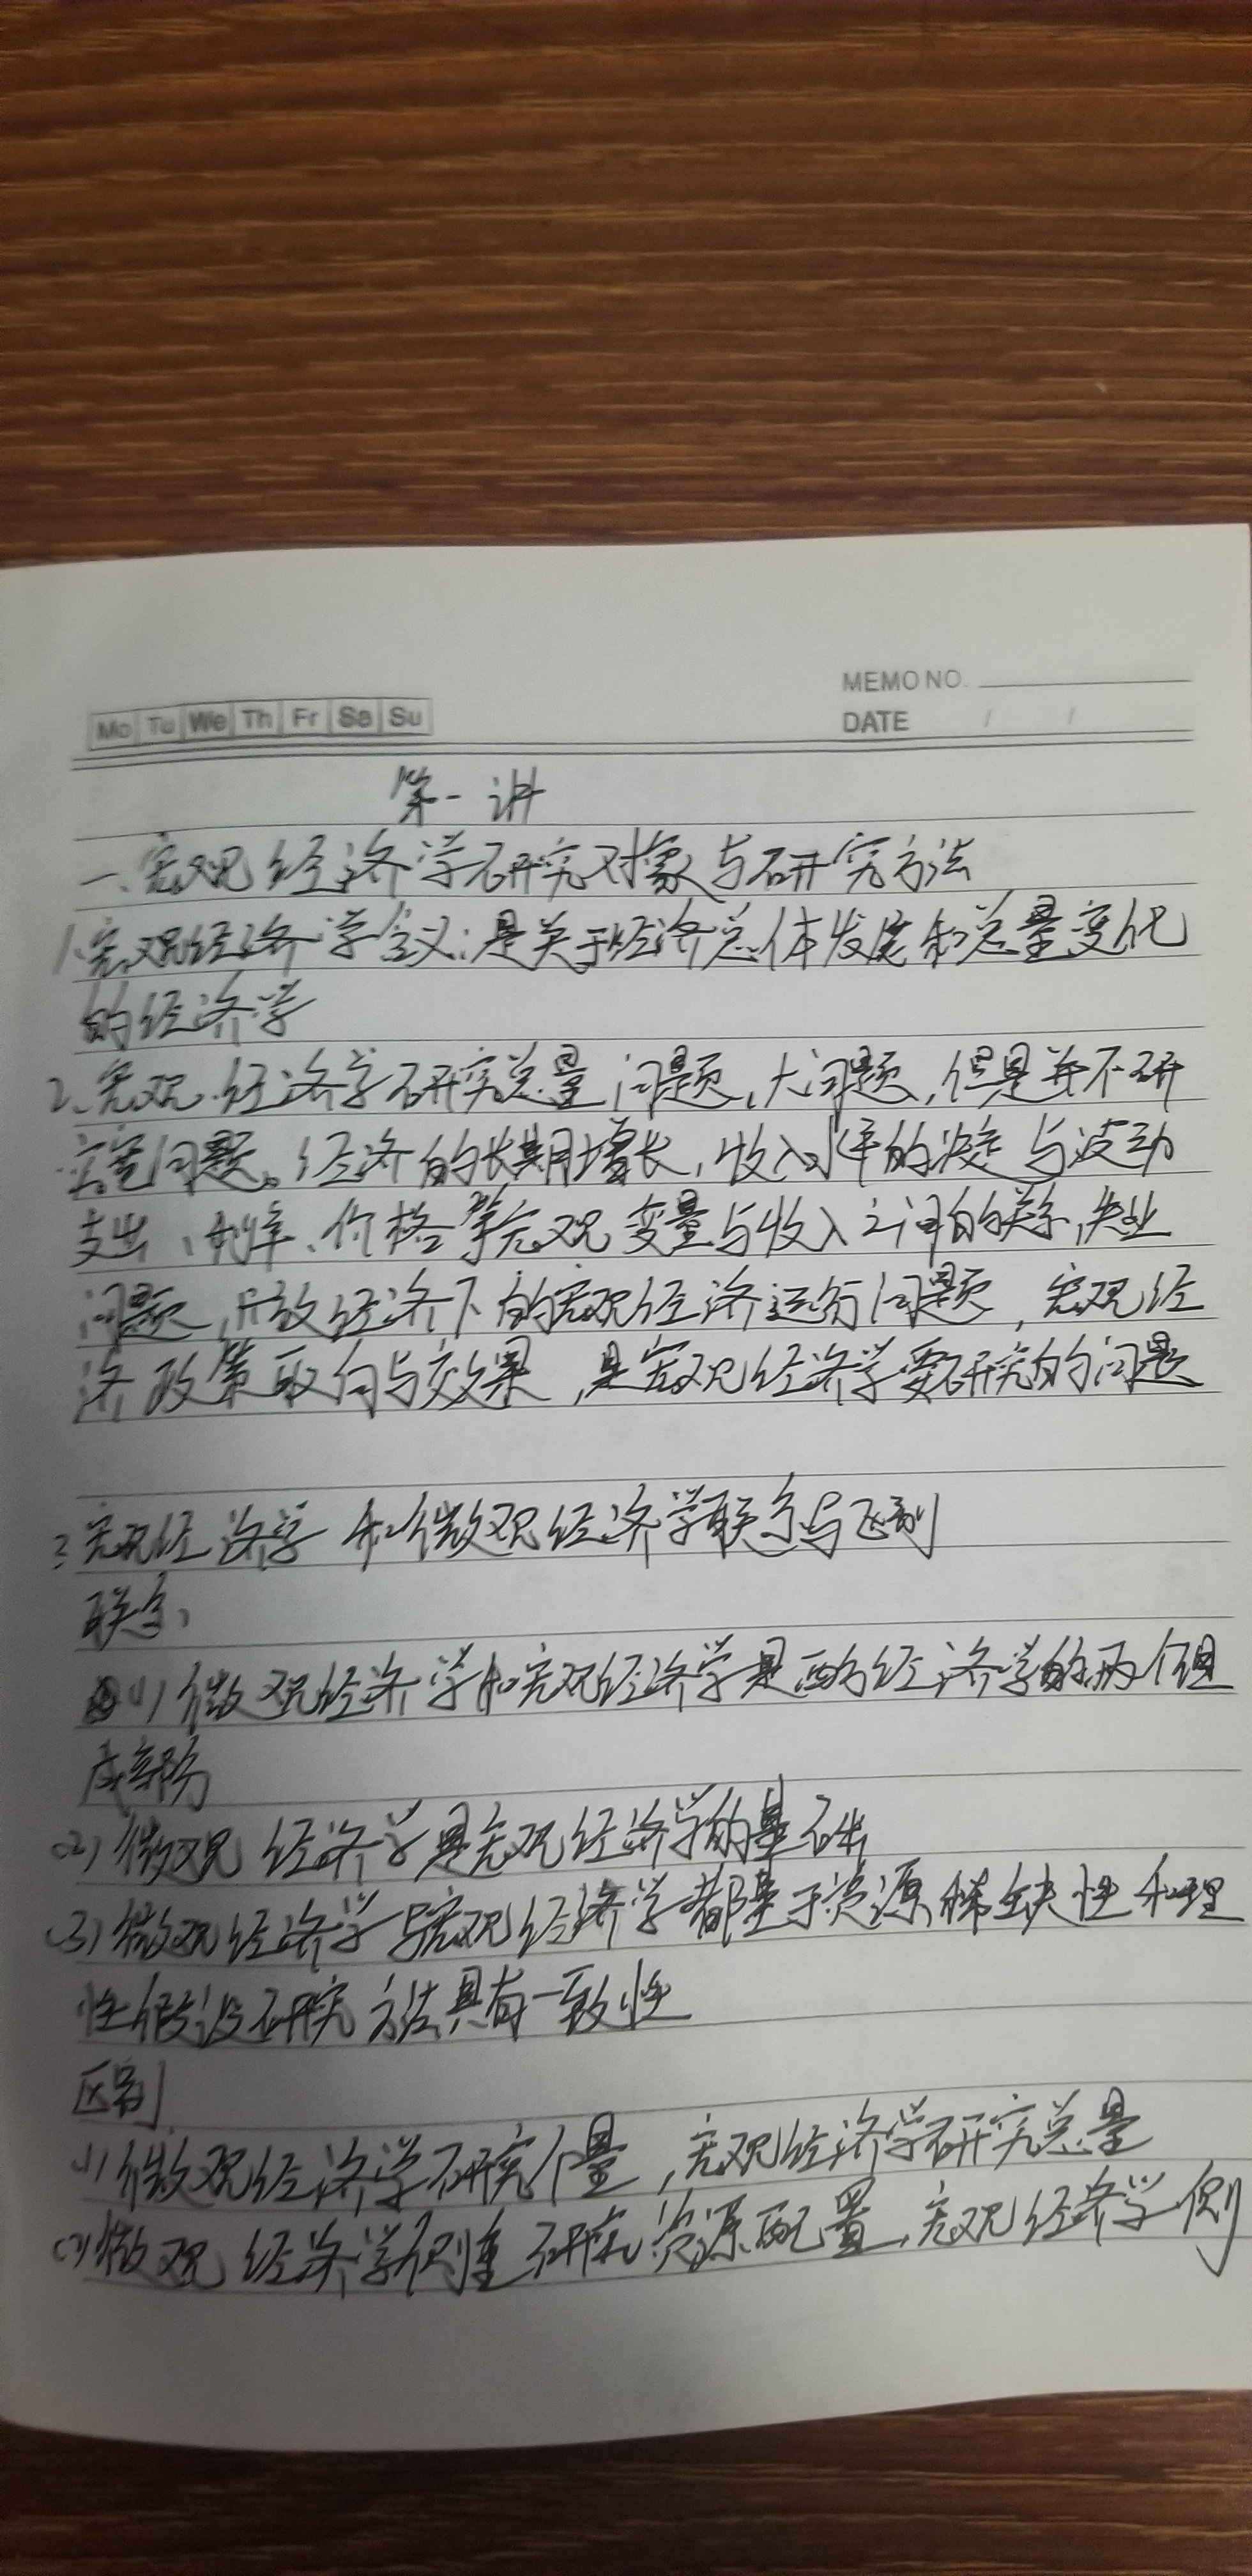 MEMO NO.
Mo Tu We Th Fr Sa Su
DATE / /
第一讲
一、宏观经济学研究对象与研究方法
1.宏观经济学含义:是关于经济总体发展和总量变化
的经济学
2、宏观经济学研究总量问题、大问题,但是并不研
问题。经济的长期增长,收入水平的决定与波动
支出、利率、价格等宏观变量与收入之间的关系,失业
问题,开放经济下的宏观经济运行问题,宏观经
济政策取向与效果,是宏观经济学要研究的问题
3.宏观经济学和微观经济学联系与区别
联系:
(1)微观经济学和宏观经济学是西方经济学的两个组
成部分
(2)微观经济学是宏观经济学的基础
(3)微观经济学与宏观经济学都基于资源稀缺性和理
性假设研究方法具有一致性
区别
(1)微观经济学研究个量,宏观经济学研究总量
(2)微观经济学侧重研究资源配置,宏观经济学侧